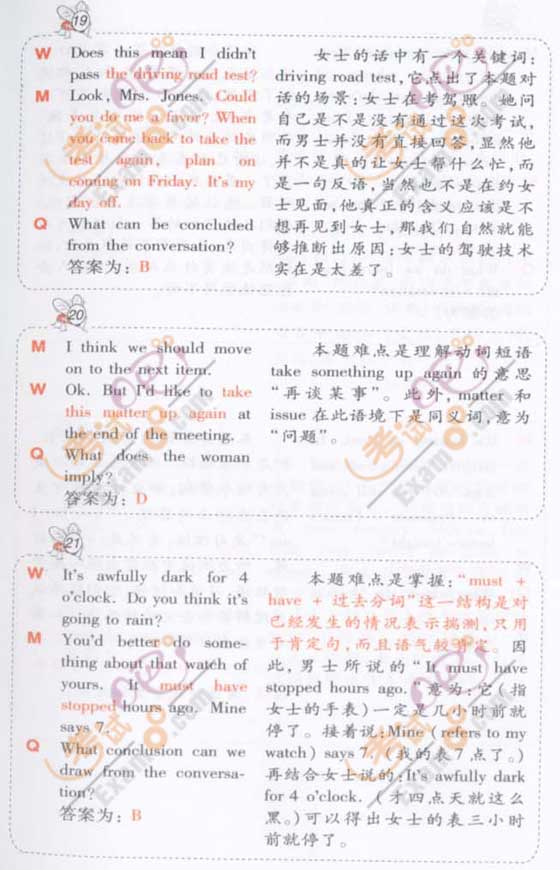 19
W Does this mean I didn't
pass the driving road test?
M Look, Mrs. Jones. Could
you do me a favor? When
you come back to take the
test again, plan on
coming on Friday. It's my
day off.
Q What can be concluded
from the conversation?
答案为：B
女士的话中有一个关键词：
driving road test，它点出了本题对
话的场景：女士在考驾照。她问
自己是不是没有通过这次考试，
而男士并没有直接回答，显然他
并不是真的让女士帮什么忙，而
是一句反语，当然也不是在约女
士见面，他真正的含义应该是不
想再见到女士，那我们自然就能
够推断出原因：女士的驾驶技术
实在是太差了。
20
M I think we should move
on to the next item.
W Ok. But I'd like to take
this matter up again at
the end of the meeting.
Q What does the woman
imply?
答案为：D
本题难点是理解动词短语
take something up again 的意思
“再谈某事”。此外，matter 和
issue 在此语境下是同义词，意为
“问题”。
21
W It's awfully dark for 4
o'clock. Do you think it's
going to rain?
M You'd better do some-
thing about that watch of
yours. It must have
stopped hours ago. Mine
says 7.
Q What conclusion can we
draw from the conversa-
tion?
答案为：B
本题难点是掌握：“must +
have + 过去分词”这一结构是对
已经发生的情况表示揣测，只用
于肯定句，而且语气较肯定。因
此，男士所说的“It must have
stopped hours ago.”意为：它（指
女士的手表）一定是几小时前就
停了。接着说：Mine (refers to my
watch) says 7.（我的表7点了。）
再结合女士说的：It's awfully dark
for 4 o'clock.（才四点天就这么
黑。）可以得出女士的表三小时
前就停了。
考试
Exam8.com
考试
Exam8.com
考试
Exam8.com
考试
Exam8.com